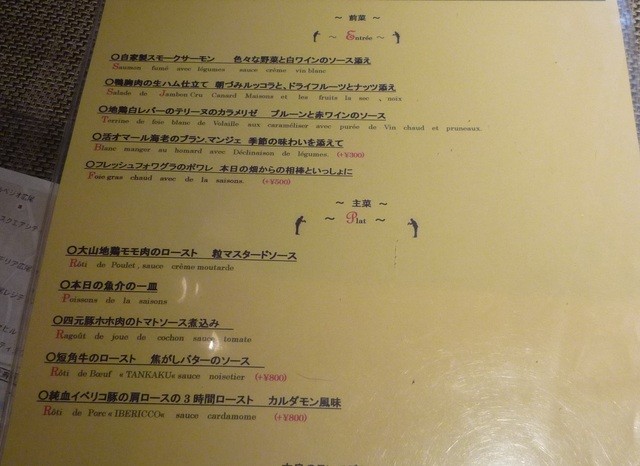 ～ 前菜 ～
～ Entrée ～
〇自家製スモークサーモン　色々な野菜と白ワインのソース添え
Saumon fumé avec légumes sauce crème vin blanc
〇鴨胸肉の生ハム仕立て 朝づみルッコラと、ドライフルーツとナッツ添え
Salade de Jambon Cru Canard Maisons et les fruits la sec , noix
〇地鶏白レバーのテリーヌのカラメリゼ　プルーンと赤ワインのソース
Terrine de foie blanc de Volaille aux caraméliser avec purée de Vin chaud et pruneaux.
〇活オマール海老のブラン,マンジェ 季節の味わいを添えて
Blanc manger au homard avec Déclinaison de légumes. (+¥300)
〇フレッシュフォワグラのポワレ 本日の畑からの相棒といっしょに
Foie gras chaud avec de la saisons. (+¥500)
～ 主菜 ～
～ Plat ～
〇大山地鶏モモ肉のロースト　粒マスタードソース
Rôti de Poulet , sauce crème moutarde
〇本日の魚介の一皿
Poissons de la saisons
〇四元豚ホホ肉のトマトソース煮込み
Ragoût de joue de cochon sauce tomate
〇短角牛のロースト　焦がしバターのソース
Rôti de Bœuf « TANKAKU« sauce noisetier (+¥800)
〇純血イベリコ豚の肩ロースの３時間ロースト　カルダモン風味
Rôti de Porc « IBERICCO« sauce cardamome (+¥800)